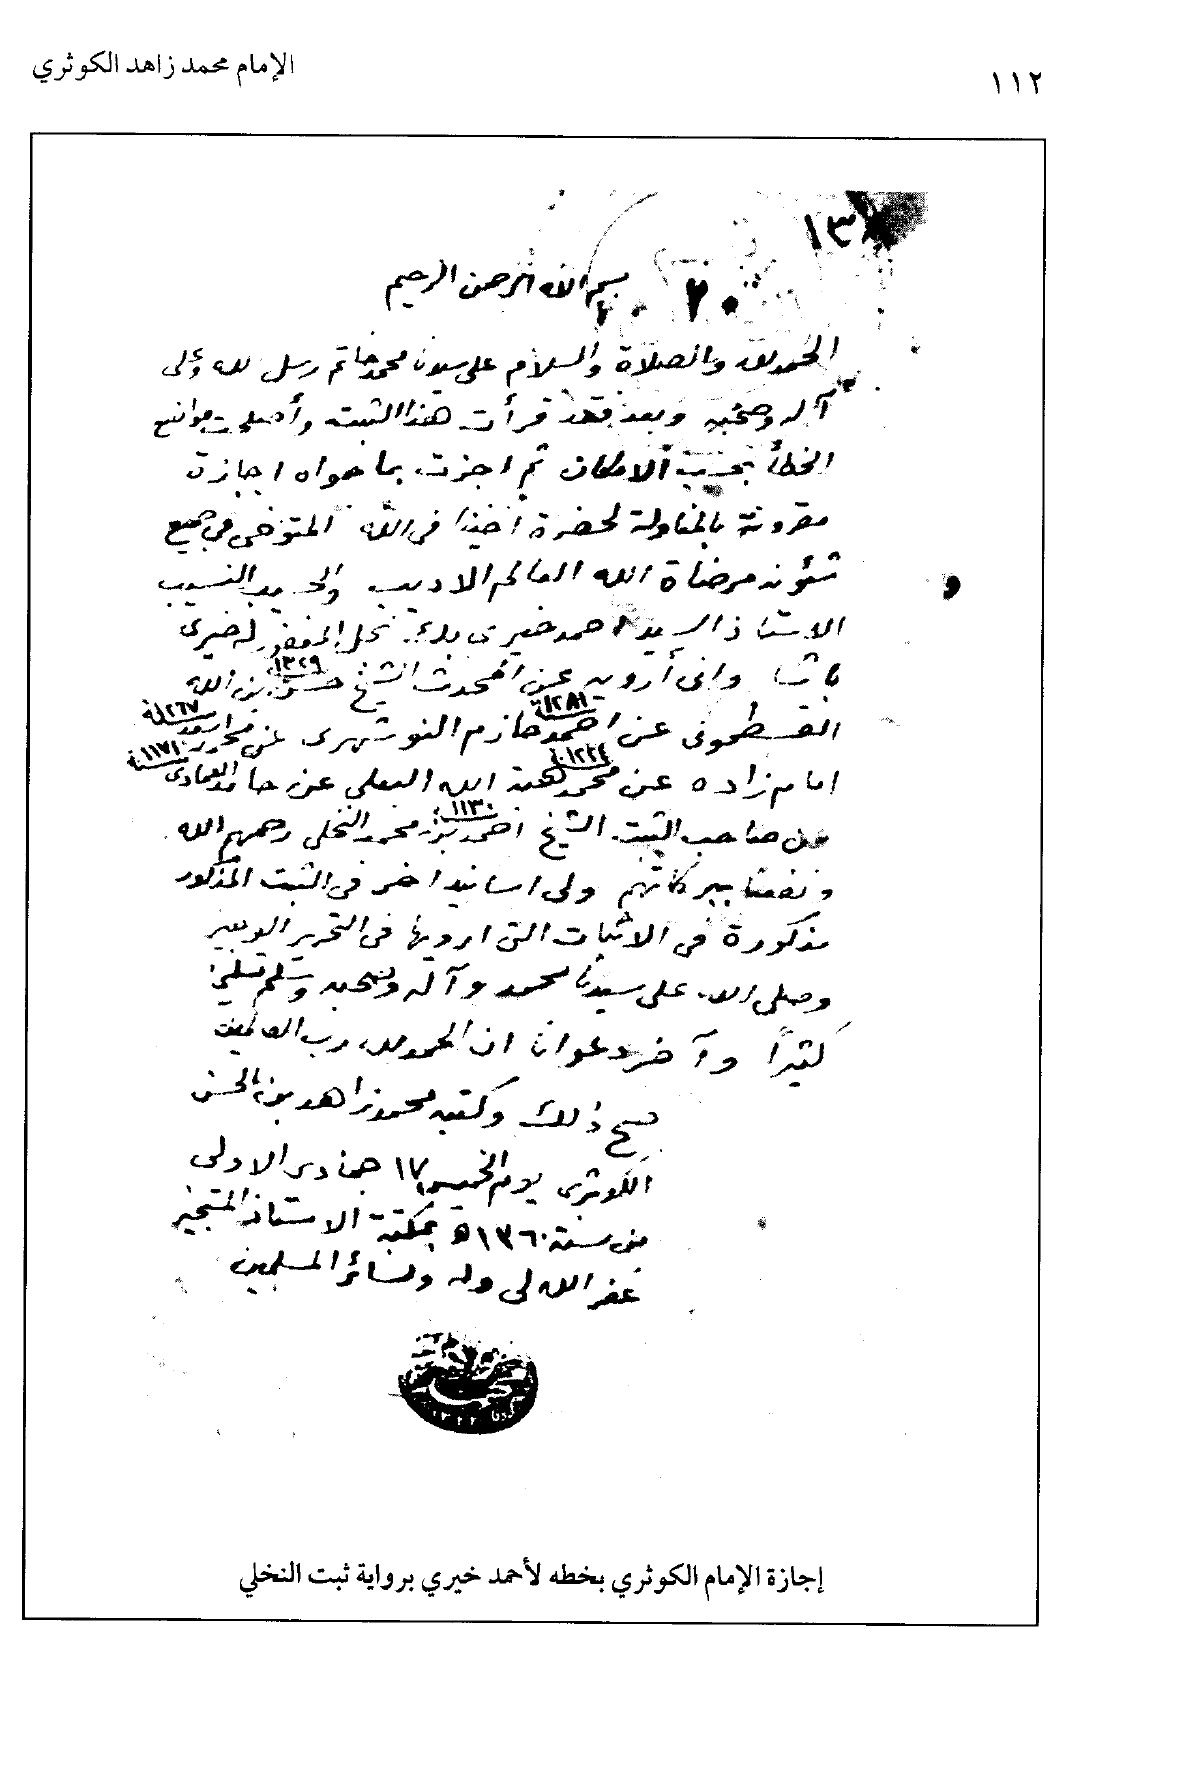 الإمام محمد زاهد الكوثري
١١٢
١٣
٢٠
بسم الله الرحمن الرحيم
الحمد لله والصلاة والسلام على سيدنا محمد خاتم رسل الله وعلى
آله وصحبه وبعد فقد قرأت هذا الثبت وأصلحت مواضع
الخطأ بحسب الامكان ثم اجزت بما حواه اجازة
مقرونة بالمناولة لحضرة أخينا في الله المتوخى في جميع
شئونه مرضاة الله العالم الاديب والحسيب النسيب
الاستاذ السيد احمد خيرى بك نجل المغفور له خيرى
باشا وانى أرويه عن المحدث الشيخ حسن بن الله
١٣٢٩
القسطمونى عن احمد حازم النوشهرى عن محمد اسعد
١٢٨١
١٢٦٧
امام زاده عن محمد هبة الله البعلى عن حامد العمادى
١٢٢٤
١١٧١
عن صاحب الثبت الشيخ احمد بن محمد النخلى رحمهم الله
١١٣٠
ونفعنا ببركاتهم ولى اسانيد اخر في الثبت المذكور
مذكورة في الاثبات التى ارويها في التحرير الوجيز
وصلى الله على سيدنا محمد وآله وصحبه وسلم تسليما
كثيرًا وآخر دعوانا ان الحمد لله رب العالمين
صح ذلك وكتبه محمد زاهد بن الحسن
الكوثرى يوم الخميس ١٧ جمادى الاولى
من سنة ١٣٦٠ھ بمكتبة الاستاذ المستجيز
غفر الله لى وله ولسائر المسلمين
إجازة الإمام الكوثري بخطه لأحمد خيري برواية ثبت النخلي